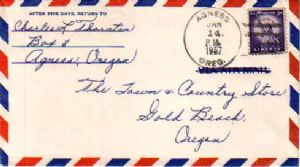 AFTER FIVE DAYS, RETURN TO
Charles L Thornton
Box 8
Agness, Oregon
AGNESS
JAN
14
P.M.
1957
OREG.
VIA AIR MAIL
The Town & Country Store
Gold Beach,
Oregon